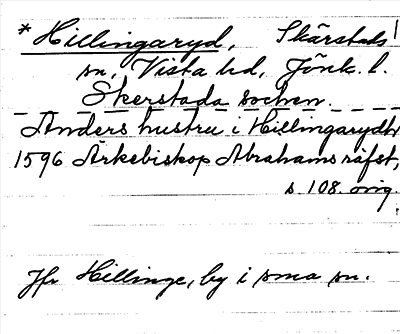 *Hillingaryd, Skärstads
sn, Vista hd, Jönk. l.
Skerstada sochen.
Anders hustru i Hillingarydh
1596 Ärkebiskop Abrahams räfst,
s. 108. orig.
Jfr Hillinge, by i sma sn.